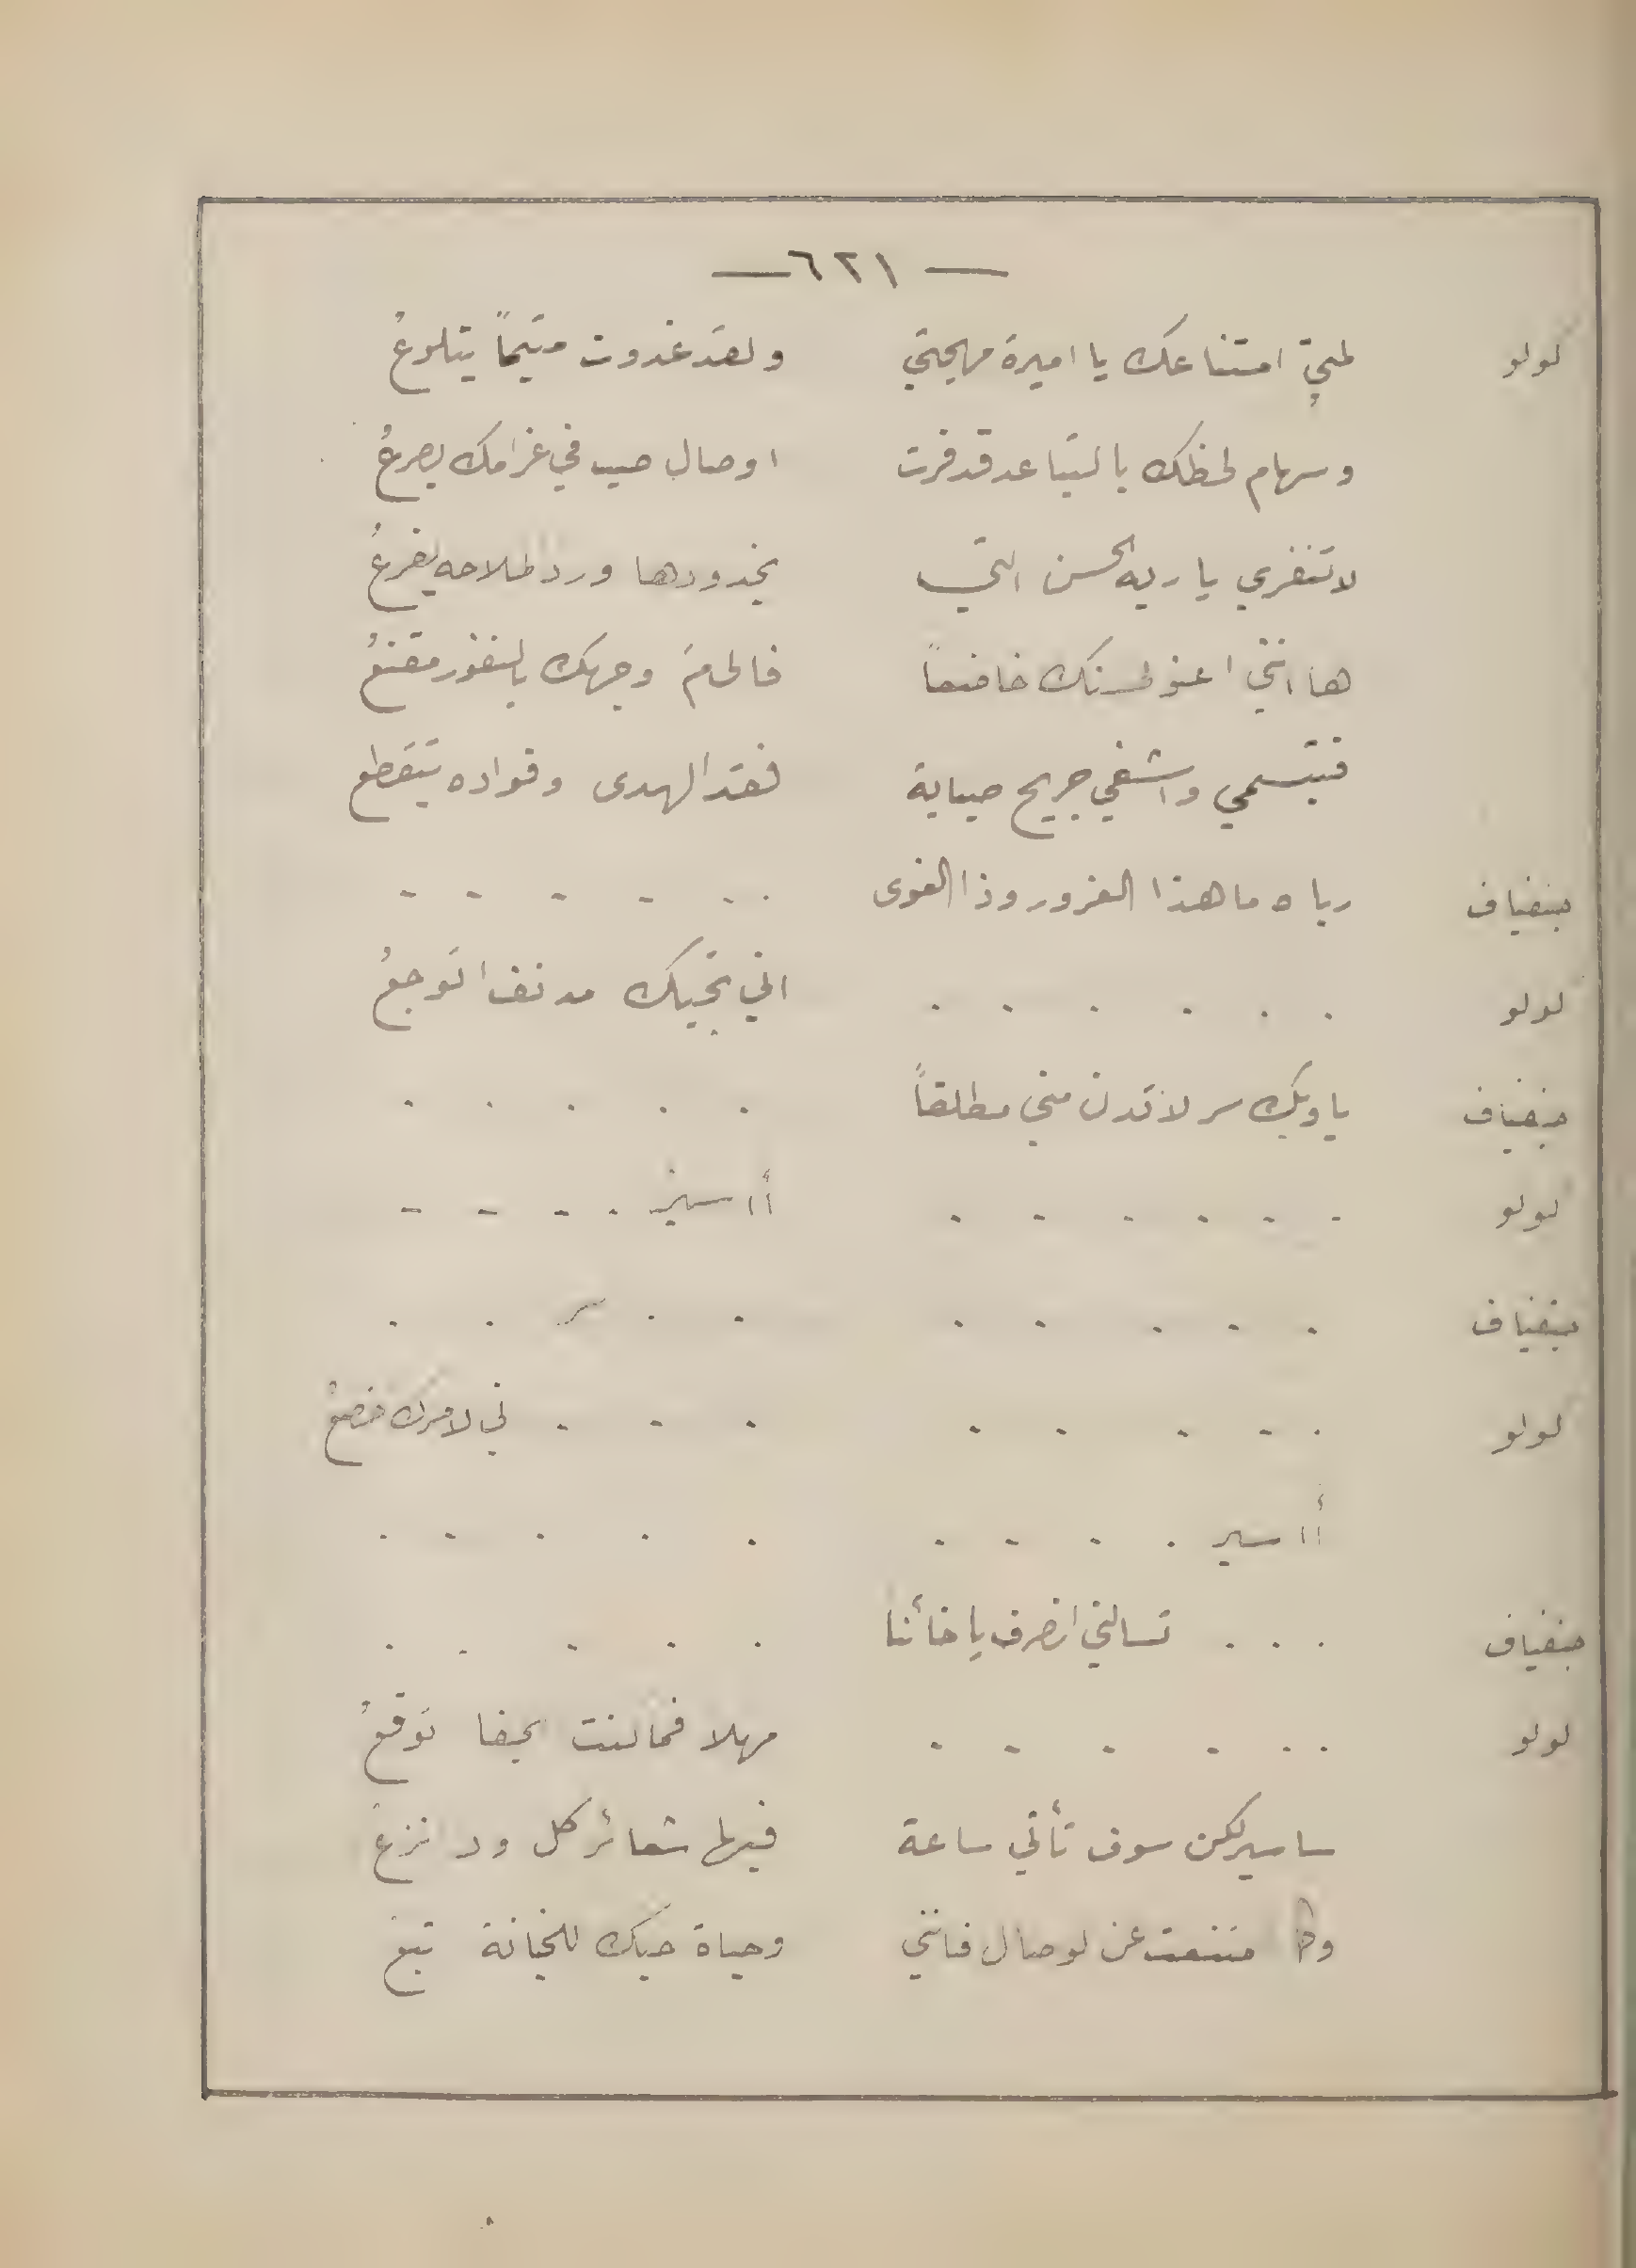 — ٦٢١ —
لولو امتناعك يا اميرة مهجتي ولقد غدوت متيماً يتلوعُ
وسهام لحظك بالتباعد قد فرت اوصال صب في غرامك يصرعُ
لا تنفري يا ربه الحسن التي بخدودها ورد الملاحه يفرعُ
ها انني اعنو لحسنك خاضعاً فالى مَ وجهك بالنفور مقنعُ
فتبسمي واشفي جريح صبابة فقد الهدى وفواده يتقطع
جنفياف رباه ما هذا الغرور وذا الغوى . . . . . .
لولو . . . . . . اني بحبك مدنف اتوجعُ
جنفياف يا ويك سر لا تدن مني مطلقاً . . . . .
لولو . . . . . . أاسير . . . .
جنفياف . . . . . . . سر . .
لولو . . . . . . . . . لامرك خضعُ
أاسير . . . . . . . . .
جنفياف . . . تسالني انصرف يا خائنا . . . . .
لولو . . . . . . مهلا فما كنت بجفا توقعُ
ساسير لكن سوف تأتي ساعة فيها شعائر كل ود انزع
منعت عن لوصال فانني وحياة حبك للخيانة تبع